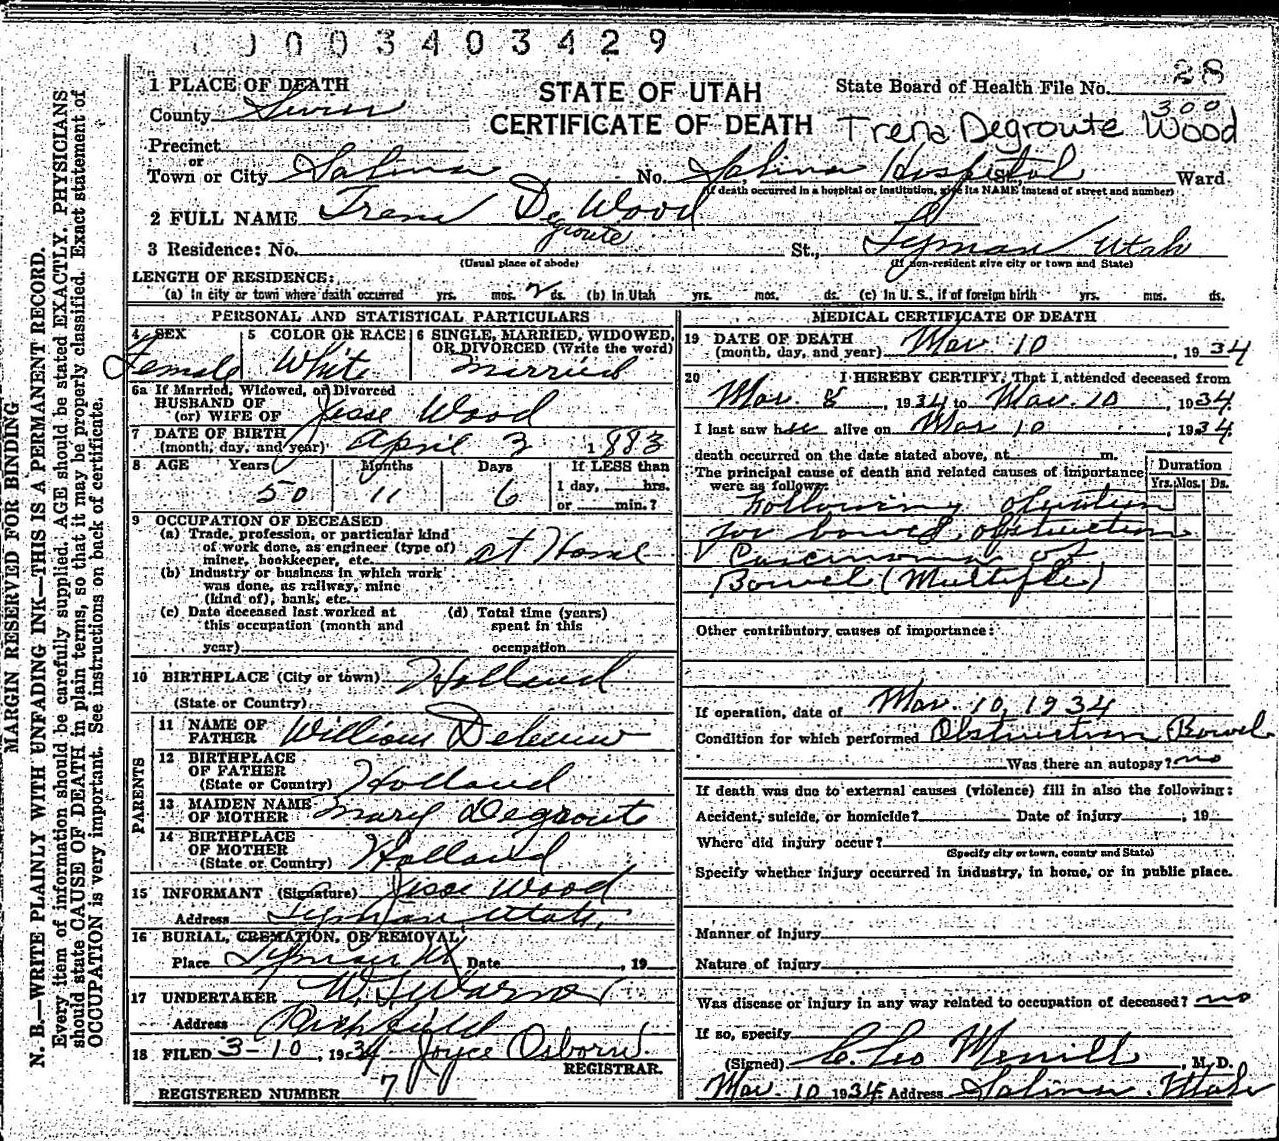 0 0 0 0 3 4 0 3 4 2 9
MARGIN RESERVED FOR BINDING
N. B.—WRITE PLAINLY WITH UNFADING INK—THIS IS A PERMANENT RECORD.
Every item of information should be carefully supplied. AGE should be stated EXACTLY. PHYSICIANS
should state CAUSE OF DEATH in plain terms, so that it may be properly classified. Exact statement of
OCCUPATION is very important. See instructions on back of certificate.
STATE OF UTAH
CERTIFICATE OF DEATH
State Board of Health File No. 28
300
Trena Degroute Wood
1 PLACE OF DEATH
County Sevier
Precinct
or
Town or City Salina No. Salina Hospital St., Ward
(If death occurred in a hospital or institution, give its NAME instead of street and number)
2 FULL NAME Trena De Wood
groute
3 Residence: No. St., Lyman Utah
(Usual place of abode) (If non-resident give city or town and State)
LENGTH OF RESIDENCE:
(a) In city or town where death occurred yrs. mos. 2 ds. (b) In Utah yrs. mos. ds. (c) In U. S., if of foreign birth yrs. mos. ds.
PERSONAL AND STATISTICAL PARTICULARS
4 SEX Female
5 COLOR OR RACE White
6 SINGLE, MARRIED, WIDOWED,
OR DIVORCED (Write the word)
Married
6a If Married, Widowed, or Divorced
HUSBAND OF
(or) WIFE OF Jesse Wood
7 DATE OF BIRTH
(month, day, and year) April 3 1883
8 AGE Years Months Days If LESS than
50 11 6 1 day, hrs.
or min.?
9 OCCUPATION OF DECEASED
(a) Trade, profession, or particular kind
of work done, as engineer (type of)
miner, bookkeeper, etc. at Home
(b) Industry or business in which work
was done, as railway, mine
(kind of), bank, etc.
(c) Date deceased last worked at
this occupation (month and
year)
(d) Total time (years)
spent in this
occupation
10 BIRTHPLACE (City or town) Holland
(State or Country)
PARENTS
11 NAME OF
FATHER William Deleeuw
12 BIRTHPLACE
OF FATHER
(State or Country) Holland
13 MAIDEN NAME
OF MOTHER Mary Degroute
14 BIRTHPLACE
OF MOTHER
(State or Country) Holland
15 INFORMANT (Signature) Jesse Wood
Address Lyman Utah,
16 BURIAL, CREMATION, OR REMOVAL
Place Lyman Ut Date , 19
17 UNDERTAKER
Address Richfield
18 FILED 3-10, 1934 Joyce Osborn.
REGISTRAR.
REGISTERED NUMBER 7
MEDICAL CERTIFICATE OF DEATH
19 DATE OF DEATH
(month, day, and year) Mar. 10 , 1934
20 I HEREBY CERTIFY, That I attended deceased from
Mar. 8 , 1934 to Mar. 10 , 1934.
I last saw her alive on Mar 10 , 1934.
death occurred on the date stated above, at m.
The principal cause of death and related causes of importance
were as follows:
Duration
Yrs. Mos. Ds.
Following operation
for bowel obstruction
Carcinoma of
Bowel (Multiple)
Other contributory causes of importance:
If operation, date of Mar. 10, 1934
Condition for which performed Obstruction Bowel
Was there an autopsy? no
If death was due to external causes (violence) fill in also the following:
Accident, suicide, or homicide? Date of injury , 19
Where did injury occur?
(Specify city or town, county and State)
Specify whether injury occurred in industry, in home, or in public place.
Manner of injury
Nature of injury
Was disease or injury in any way related to occupation of deceased? no
If so, specify
(Signed) C. Leo Merrill , M. D.
Mar. 10 1934 Address Salina Utah